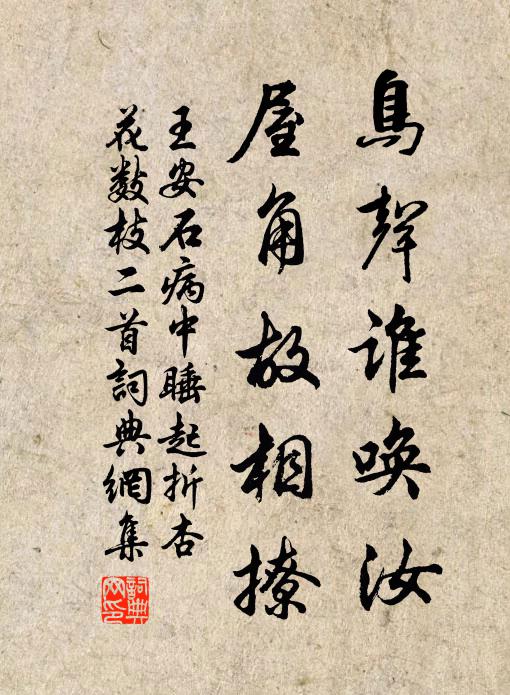 鳥聲誰喚汝
屋角故相撩
王安石病中睡起折杏
花数枝二首詞典網集
詞典